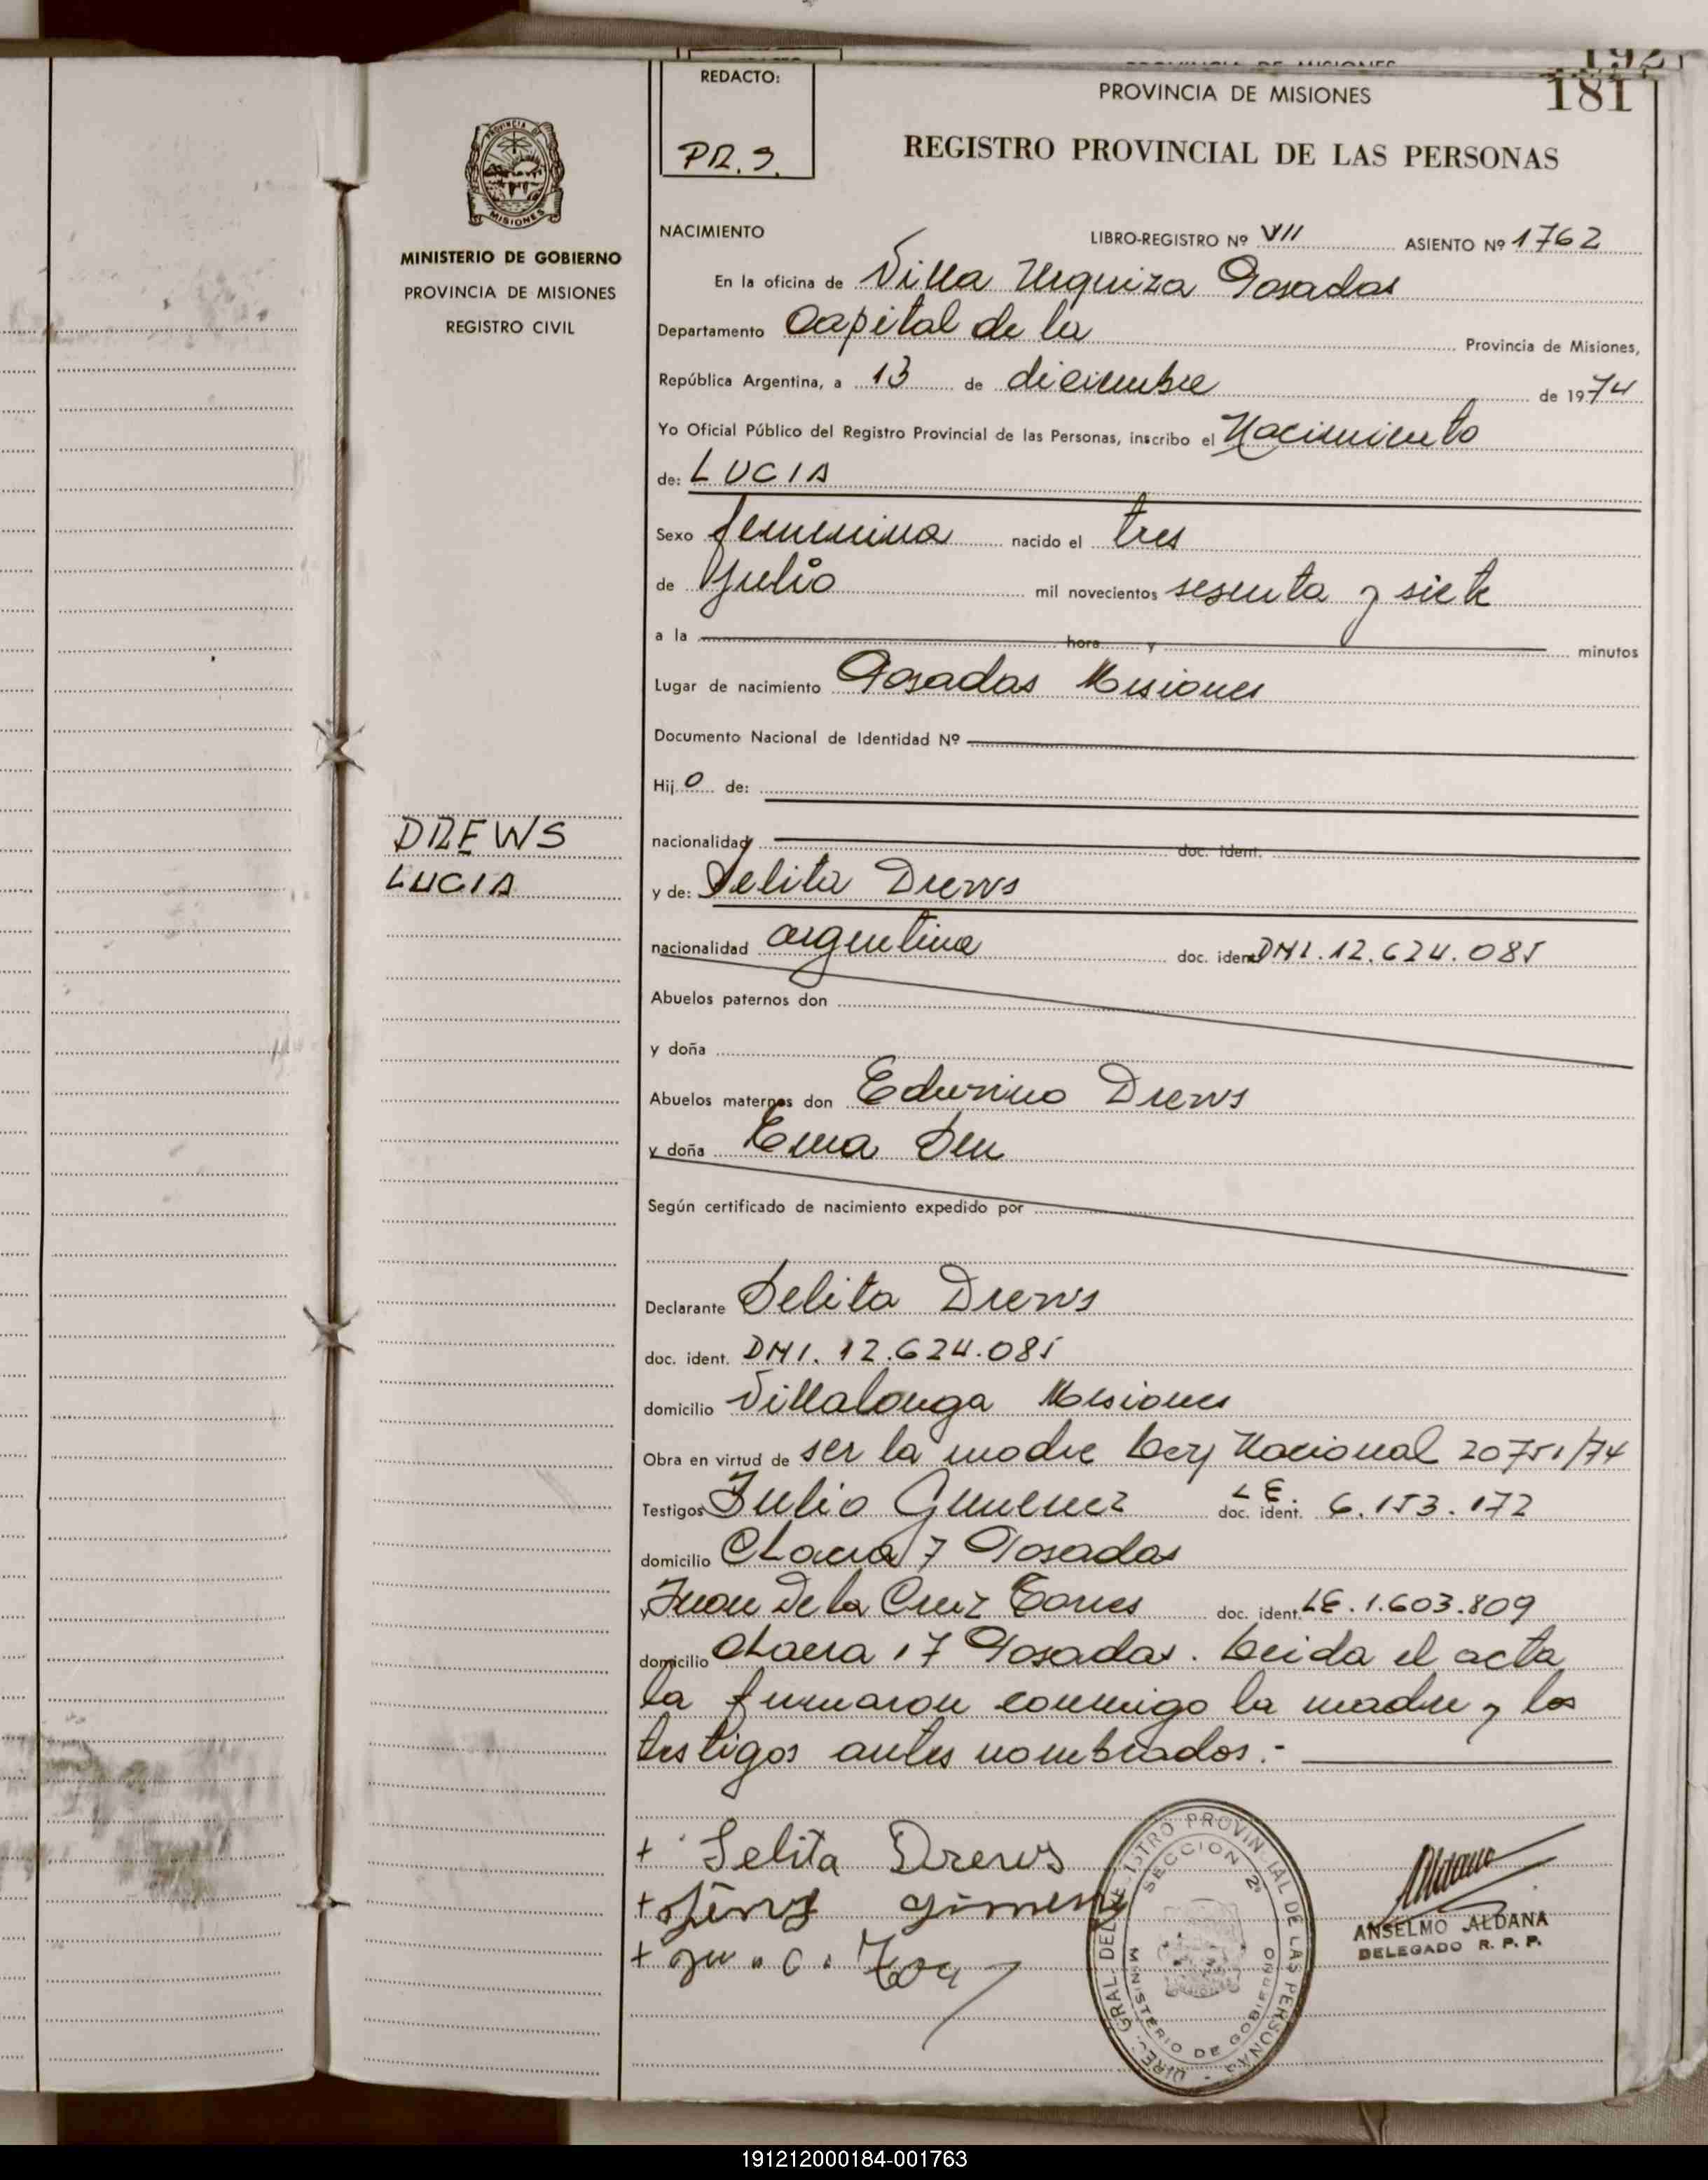 192
181
REDACTO:
PR. S.
PROVINCIA DE MISIONES
REGISTRO PROVINCIAL DE LAS PERSONAS
PROVINCIA DE
MISIONES
MINISTERIO DE GOBIERNO
PROVINCIA DE MISIONES
REGISTRO CIVIL
NACIMIENTO LIBRO-REGISTRO Nº VII ASIENTO Nº 1762
En la oficina de Villa Urquiza Posadas
Departamento Capital de la Provincia de Misiones,
República Argentina, a 13 de diciembre de 1974
Yo Oficial Público del Registro Provincial de las Personas, inscribo el Nacimiento
de: LUCIA
Sexo femenina nacido el tres
de Julio mil novecientos sesenta y siete
a la hora y minutos
Lugar de nacimiento Posadas Misiones
Documento Nacional de Identidad Nº
Hijo de:
DREWS
LUCIA
nacionalidad doc. ident.
y de: Selita Drews
nacionalidad argentina doc. ident. DNI. 12.624.085
Abuelos paternos don
y doña
Abuelos maternos don Eduvino Drews
y doña Ema
Según certificado de nacimiento expedido por
Declarante Selita Drews
doc. ident. DNI. 12.624.085
domicilio Villalonga Misiones
Obra en virtud de ser la madre Ley Nacional 20751/74
Testigos Julio Gimenez doc. ident. LE. 6.153.172
domicilio Chacra 7 Posadas
y Juan De la Cruz Torres doc. ident. LE. 1.603.809
domicilio Chacra 17 Posadas. Leida el acta
la firmaron conmigo la madre y los
testigos antes nombrados.-
+ Selita Drews
+ gimenez
+ Ju. C. Torr
DIREC. GRAL. DEL REGISTRO PROVINCIAL DE LAS PERSONAS
SECCION 2ª
MINISTERIO DE GOBIERNO
ANSELMO ALDANA
DELEGADO R. P. P.
191212000184-001763